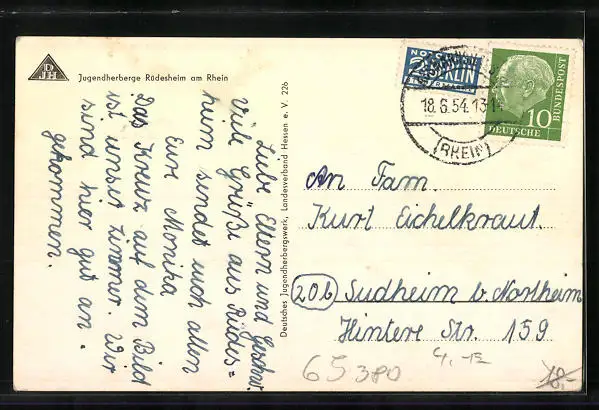 DJH
Jugendherberge Rüdesheim am Rhein
Liebe Eltern und Geschw.
Viele Grüße aus Rüdes=
heim sendet euch allen
Eure Monika
Das Kreuz auf dem Bild
ist unser Zimmer. Wir
sind hier gut an-
gekommen.
Deutsches Jugendherbergswerk, Landesverband Hessen e. V. 226
NOTOPFER
2 BERLIN
STEUERMARKE
DEUTSCHE
BUNDESPOST
10
18.6.54.13
(RHEIN)
An Fam.
Kurt Eichelkraut.
(20b) Sudheim b. Northeim
Hintere Str. 159
65380
18,-